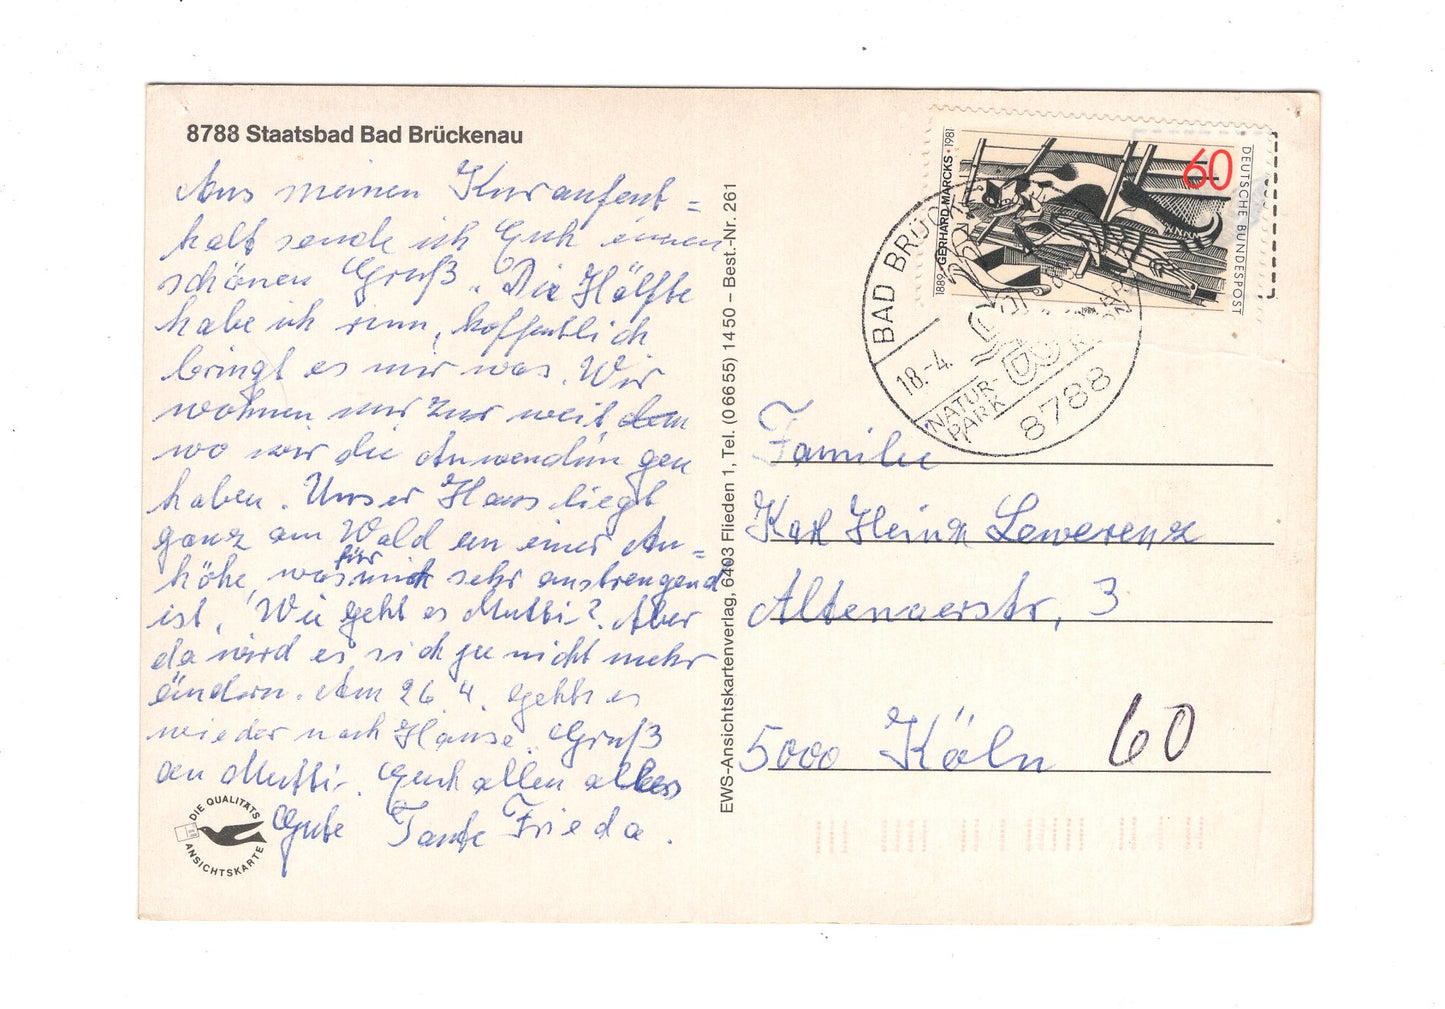 8788 Staatsbad Bad Brückenau
Aus meinen Kuraufent=
halt sende ich Euch einen
schönen Gruß. Die Hälfte
habe ich rum, hoffentlich
bringt es mir was. Wir
wohnen nur zur weit
wo wir die Anwendungen
haben. Unser Haus liegt
ganz am Wald an einer An=
höhe, was für mich sehr anstrengend
ist. Wie geht es Mutti? Aber
da wird es sich ja nicht mehr
ändern. Am 26.4. gehts es
wieder nach Hause. Gruß
an Mutti. Euch allen alles
Gute Tante Frieda.
DIE QUALITÄTS
ANSICHTSKARTE
EWS-Ansichtskartenverlag, 6403 Flieden 1, Tel. (0 66 55) 14 50 – Best.-Nr. 261
1889 • GERHARD MARCKS • 1981
60
DEUTSCHE BUNDESPOST
BAD BRÜCK
18.-4.
NATUR-
PARK
8788
Familie
Karl Heinz Lewerenz
Altenaerstr, 3
5000 Köln
60